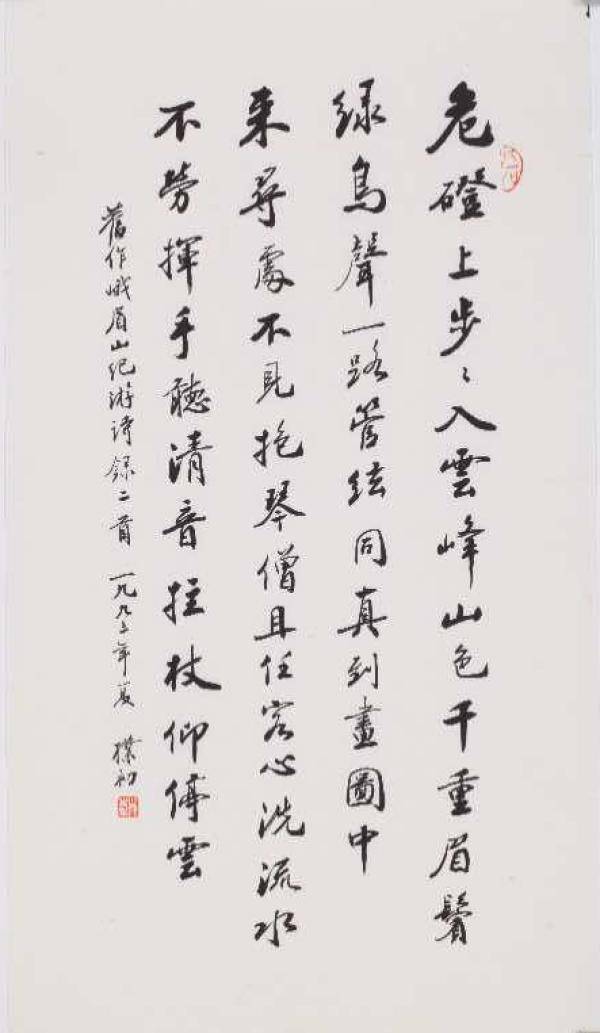 危磴上步〻入雲峰山色千重眉鬢
綠鳥聲一路管絃同真到畫圖中
來尋處不見抱琴僧且任客心洗流水
不勞揮手聽清音拄杖仰停雲
舊作峨眉山紀游詩錄二首 一九九三年夏 樸初